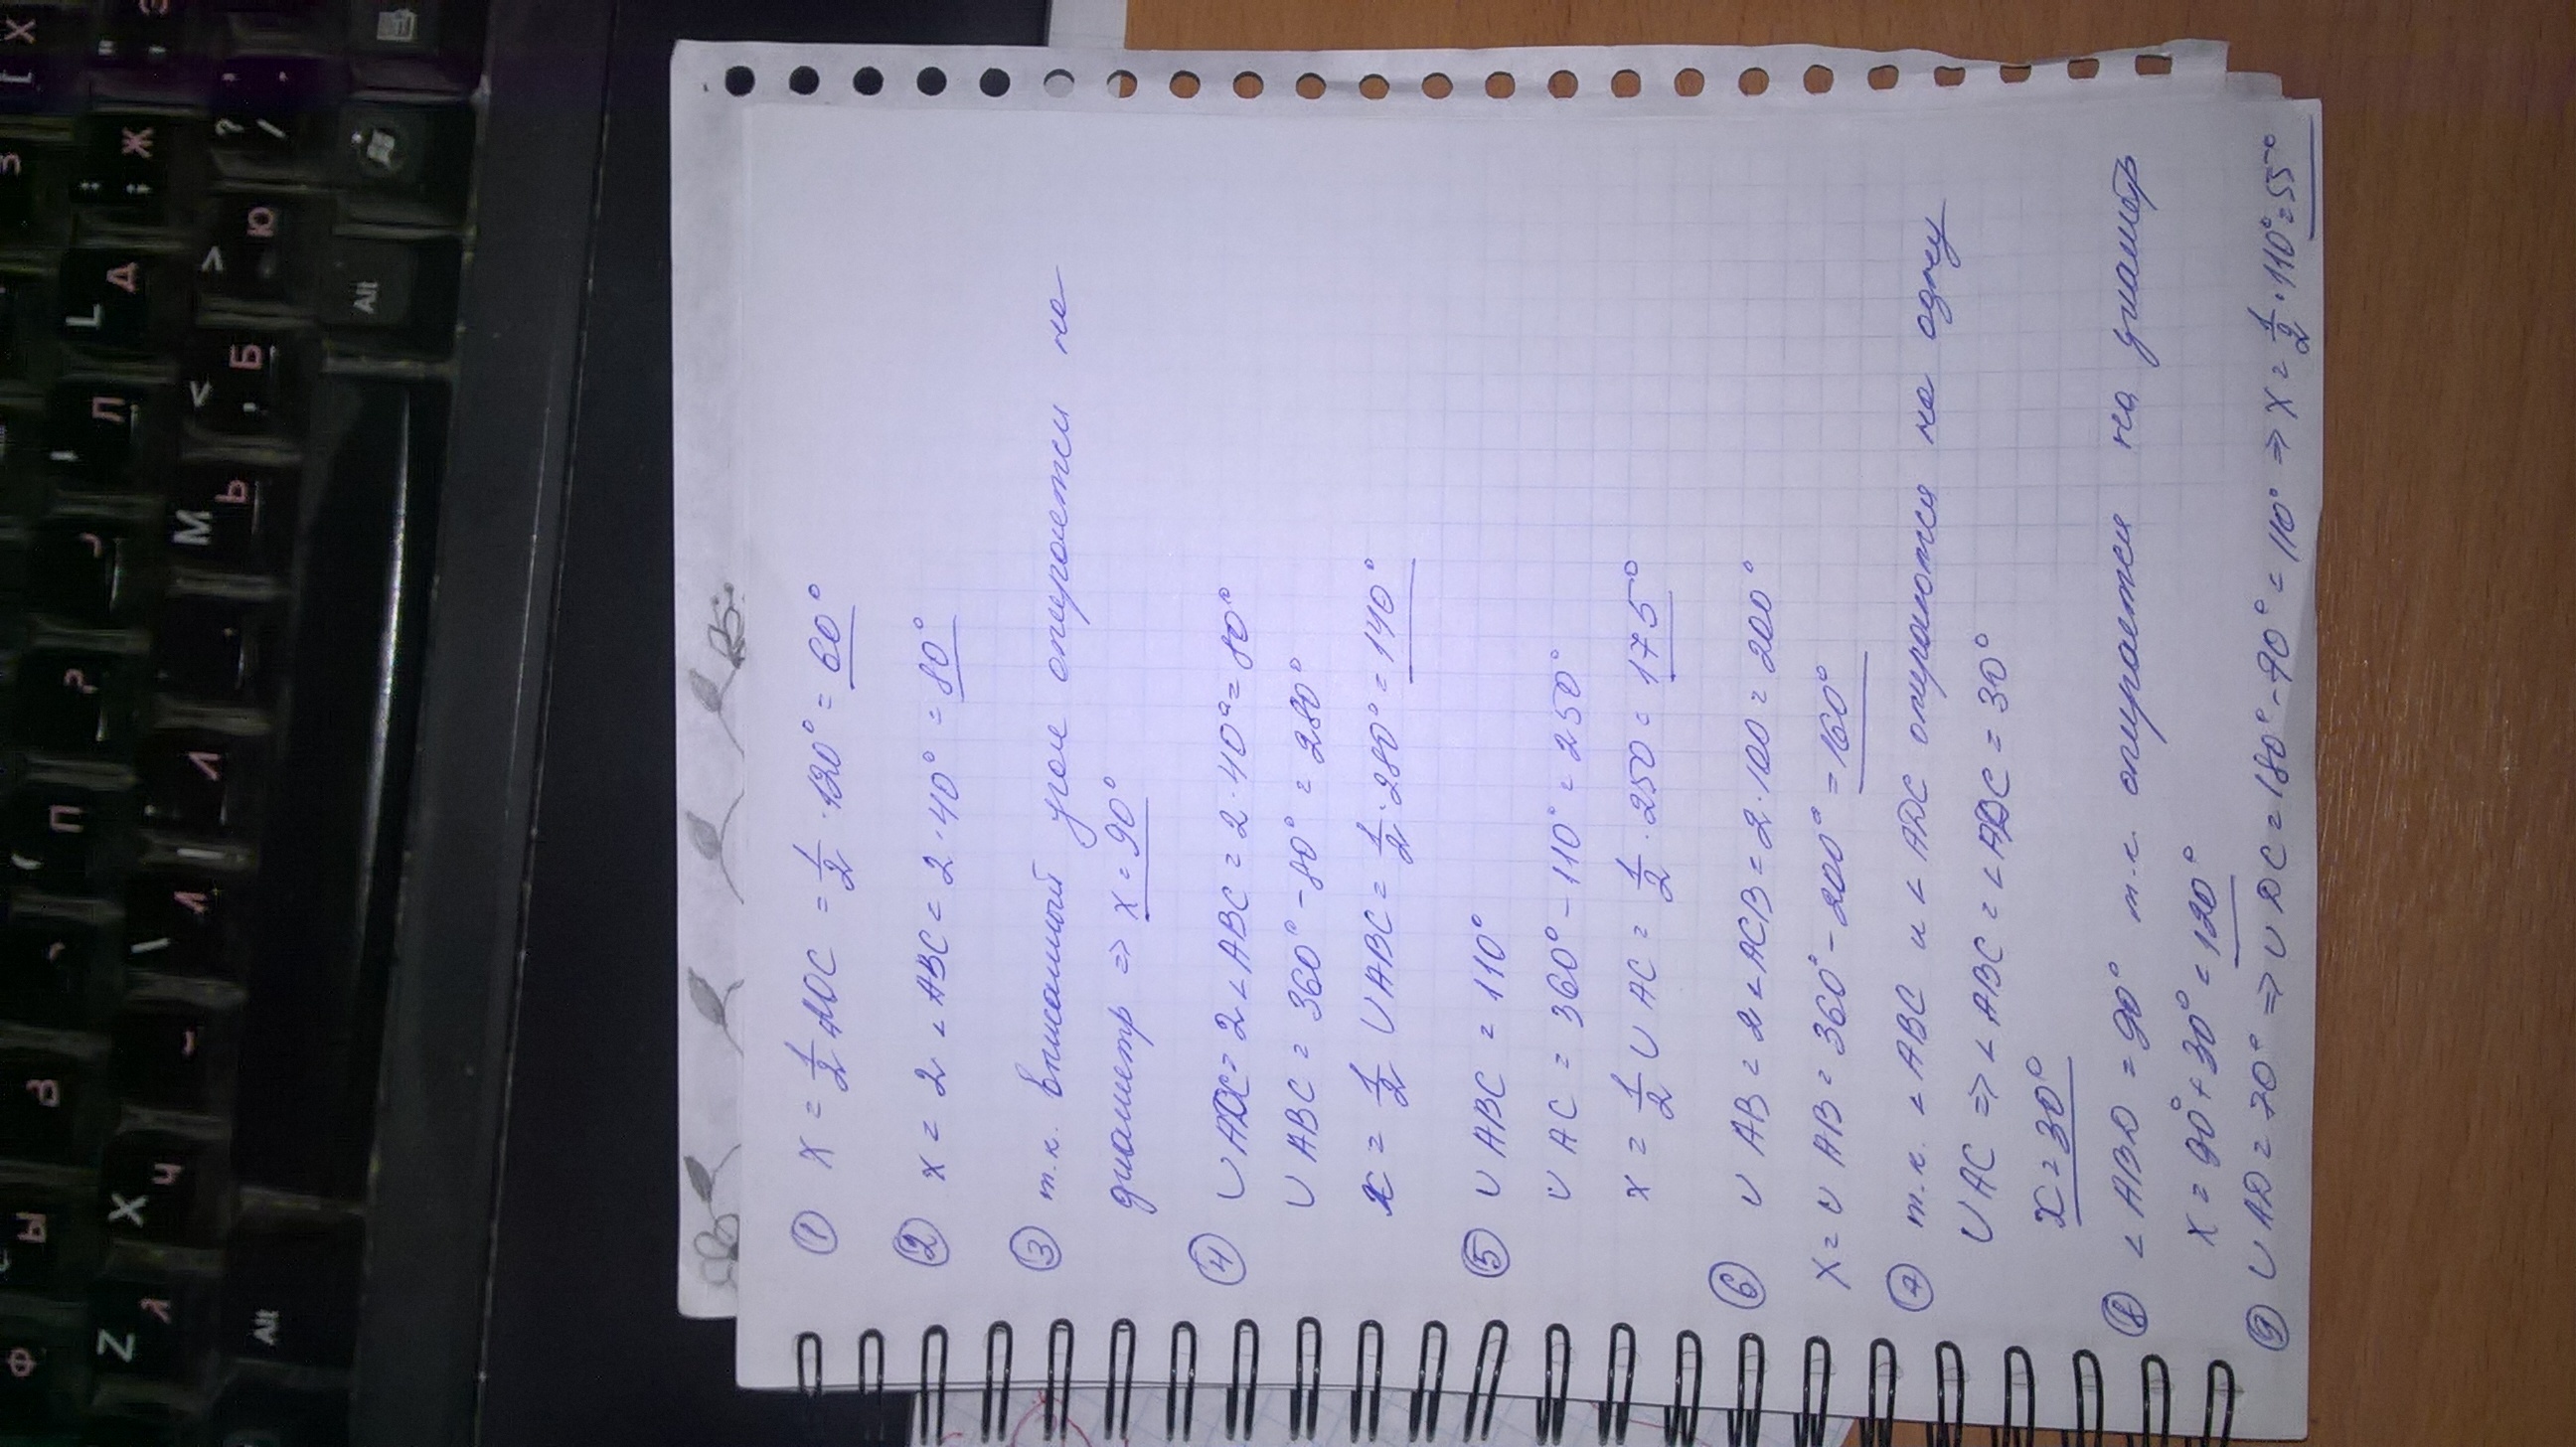 ① x = 1/2 AOC = 1/2 · 120° = 60°
② x = 2 ∠ABC = 2 · 40° = 80°
③ т.к. вписанный угол опирается на
диаметр => x = 90°
④ ∪ADC = 2∠ABC = 2 · 40° = 80°
∪ABC = 360° - 80° = 280°
x = 1/2 ∪ABC = 1/2 · 280° = 140°
⑤ ∪ABC = 110°
∪AC = 360° - 110° = 250°
x = 1/2 ∪AC = 1/2 · 250 = 175°
⑥ ∪AB = 2∠ACB = 2 · 100 = 200°
x = ∪AB = 360° - 200° = 160°
⑦ т.к. ∠ABC и ∠ADC опираются на одну
∪AC => ∠ABC = ∠ADC = 30°
x = 30°
⑧ ∠ABD = 90° т.к. опирается на диаметр
x = 90° + 30° = 120°
⑨ ∪AD = 70° => ∪DC = 180° - 70° = 110° => x = 1/2 · 110° = 55°
Alt
Alt
Z
X
M
L
Ф
Ы
Ч
Ь
Б
Ю
Л
Д
Ж
П